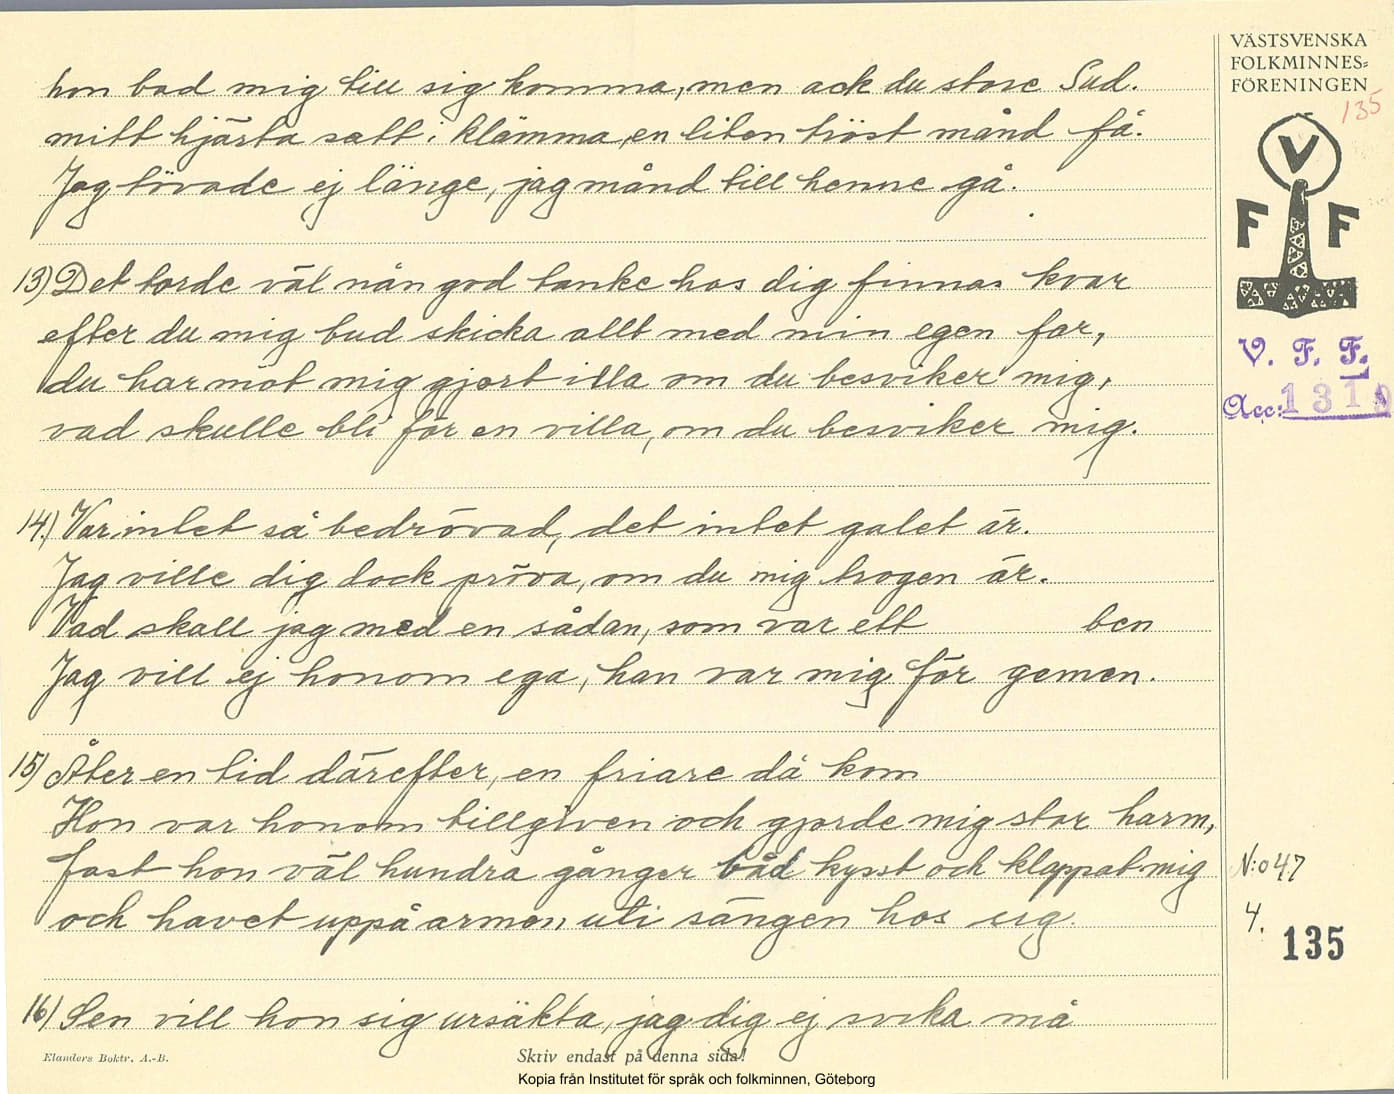 hon bad mig till sig komma, men ack du store Gud.
mitt hjärta satt i klämma, en liten tröst månd få.
Jag tövade ej länge, jag månd till henne gå.
13) Det torde väl nån god tanke hos dig finnas kvar
efter du mig bud skicka allt med min egen far,
du har mot mig gjort illa om du besviker mig,
vad skulle bli för en villa, om du besviker mig.
14.) Var intet så bedrövad, det intet galet är.
Jag ville dig dock pröva, om du mig trogen är.
Vad skall jag med en sådan, som var ett ben
Jag vill ej honom ega, han var mig för gemen.
15) Åter en tid därefter, en friare då kom
Hon var honom tillgiven och gjorde mig stor harm,
fast hon väl hundra gånger båd kysst och klappat mig
och havet uppå armen, uti sängen hos sig.
16) Sen vill hon sig ursäkta, jag dig ej svika må
Elanders Boktr. A.-B.
Skriv endast på denna sida!
Kopia från Institutet för språk och folkminnen, Göteborg
VÄSTSVENSKA
FOLKMINNES=
FÖRENINGEN
135
V
F F
V. F. F.
Acc: 1319
N:o 47
4.
135